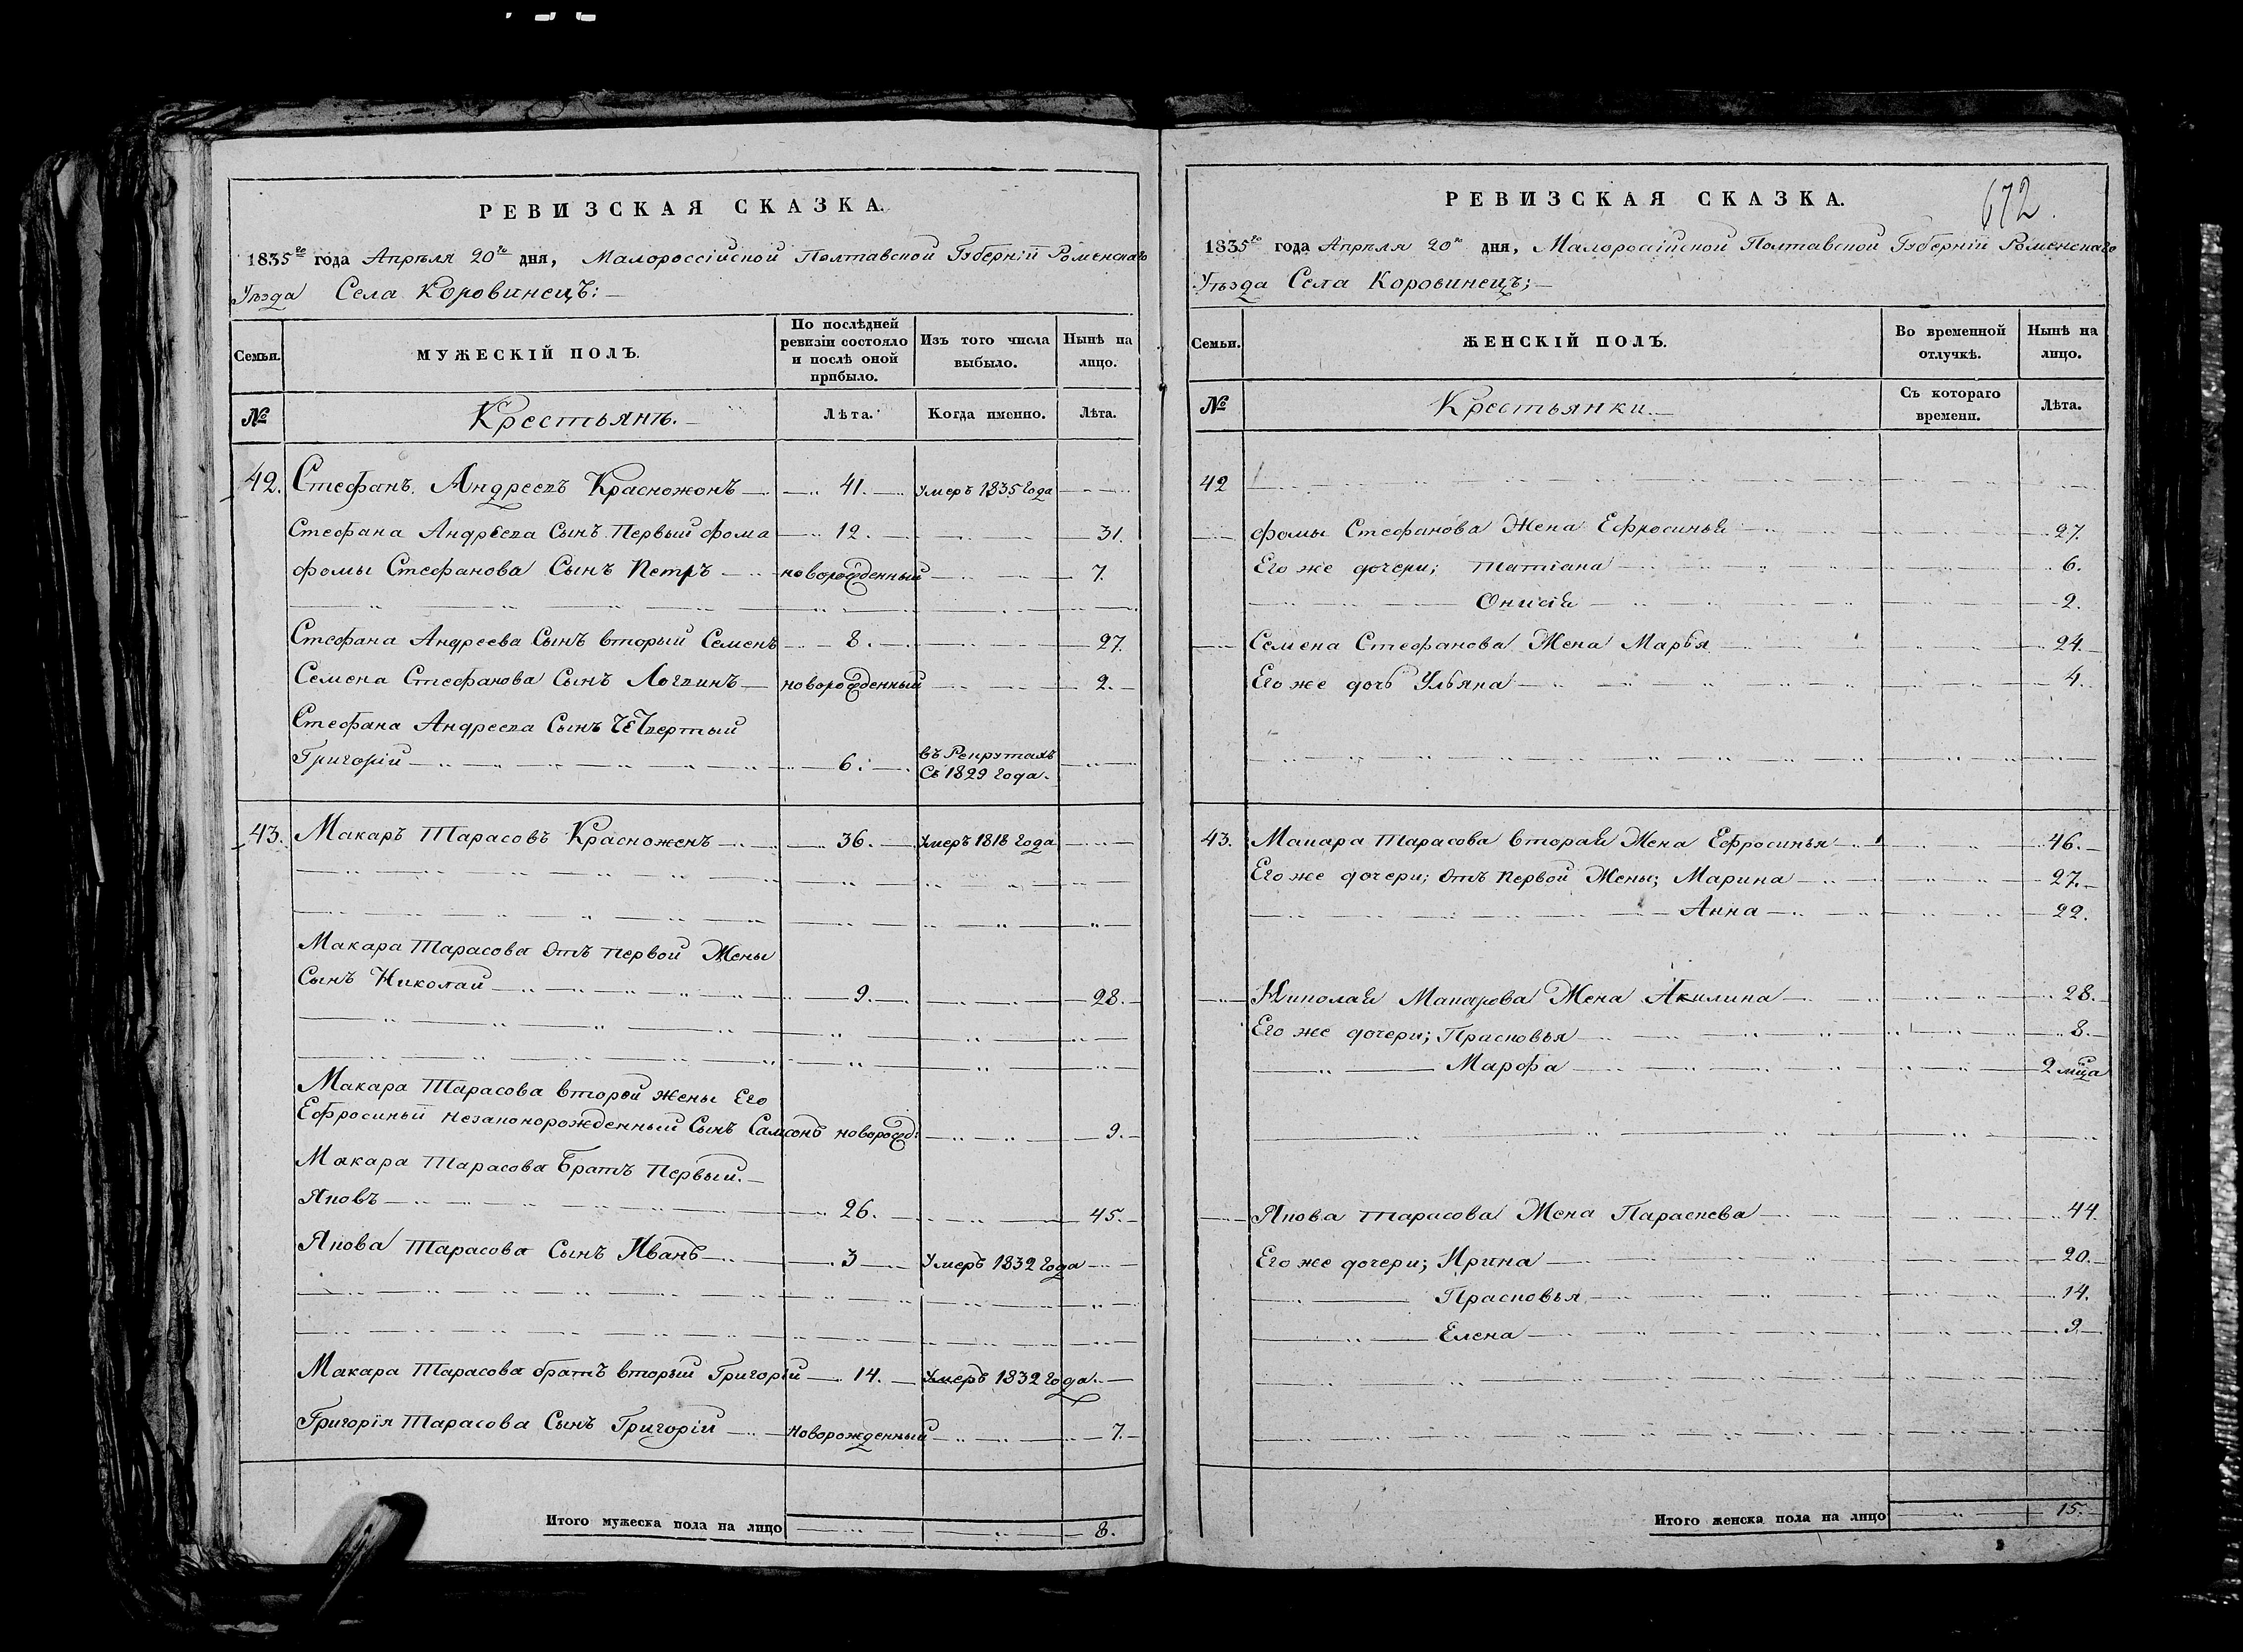 РЕВИЗСКАЯ СКАЗКА.
1835го года Апрѣля 20го дня, Малороссійской Полтавской Губерніи Роменскаго
Уѣзда Села Коровинецъ:
Семьи.
МУЖЕСКІЙ ПОЛЪ.
По послѣдней ревизіи состояло и послѣ оной прибыло.
Изъ того числа выбыло.
Нынѣ на лицо.
№
Крестьянъ.
Лѣта.
Когда именно.
Лѣта.
42. Стефанъ Андреевъ Красножонъ 41. Умеръ 1835 Года
Стефана Андреева Сынъ Первый Фома 12. 31.
Фомы Стефанова Сынъ Петръ новорожденный 7.
Стефана Андреева Сынъ вторый Семенъ 8. 27.
Семена Стефанова Сынъ Логвинъ новорожденный 2.
Стефана Андреева Сынъ Четвертый
Григорій 6. въ Рекрутахъ
Съ 1829 Года.
43. Макаръ Тарасовъ Красноженъ 36. Умеръ 1818 Года
Макара Тарасова Отъ Первой Жены
Сынъ Николай 9. 28.
Макара Тарасова второй Жены Его
Ефросиньи незаконорожденный Сынъ Самсонъ новорожд: 9.
Макара Тарасова Братъ Первый.
Яковъ 26. 45.
Якова Тарасова Сынъ Иванъ 3 Умеръ 1832 Года
Макара Тарасова братъ вторый Григорій 14. Умеръ 1832 Года.
Григорія Тарасова Сынъ Григорій Новорожденный 7.
Итого мужеска пола на лицо 8.
672.
РЕВИЗСКАЯ СКАЗКА.
1835го года Апрѣля 20го дня, Малороссійской Полтавской Губерніи Роменскаго
Уѣзда Села Коровинецъ;
Семьи.
ЖЕНСКІЙ ПОЛЪ.
Во временной отлучкѣ.
Нынѣ на лицо.
№
Крестьянки.
Съ котораго времени.
Лѣта.
42
Фомы Стефанова Жена Ефросинья 27.
Его же дочери; Татіана 6.
Онисія 2.
Семена Стефанова Жена Марья 24.
Его же дочь Ульяна 4.
43. Макара Тарасова вторая Жена Ефросинья 46.
Его же дочери; Отъ Первой Жены; Марина 27.
Анна 22.
Николая Макарова Жена Акилина 28.
Его же дочери; Прасковья 8.
Марфа 2 мца
Якова Тарасова Жена Параскева 44.
Его же дочери; Ирина 20.
Прасковья 14.
Елена 9.
Итого женска пола на лицо 15.